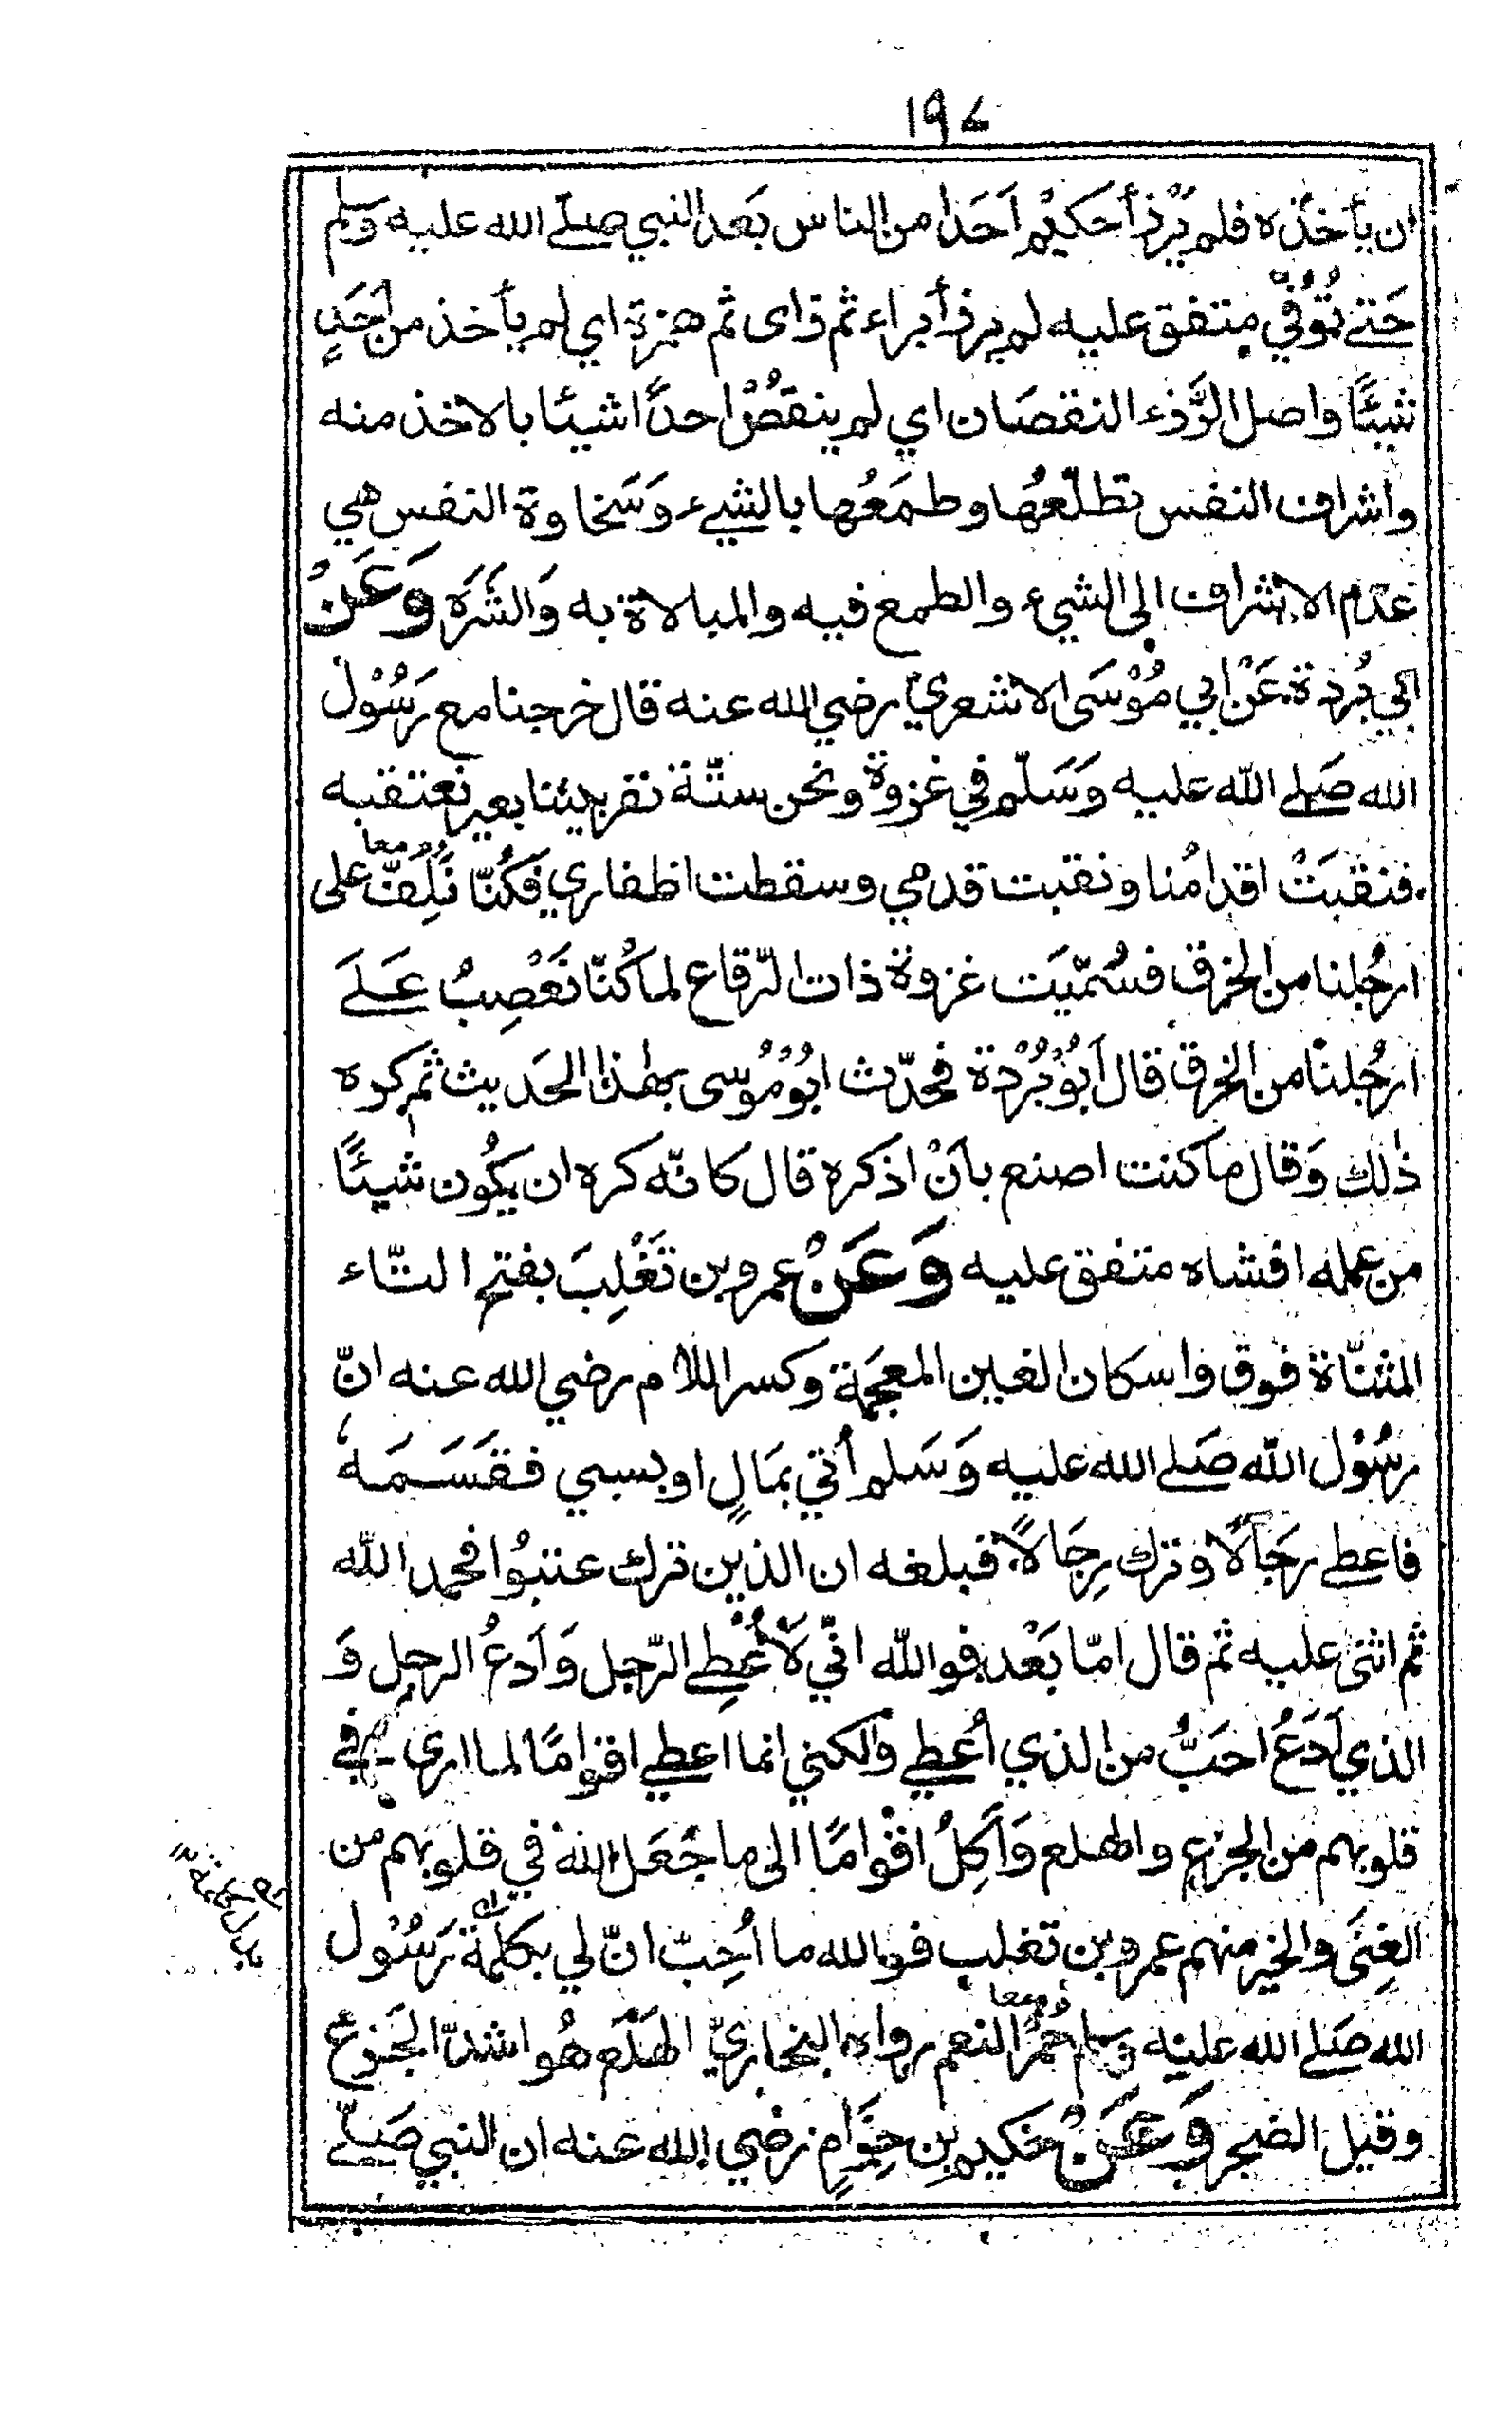 ١٩٤
ان يأخذه فلم يَرْزأ حكيم اَحَدا من الناس بَعد النبي صلّے الله عليه وسلم
حَتے تُوُفّي متفق عليه لم يرزأ براء ثم زاى ثم همزة اي لم يأخذ من اَحَدٍ
شيئًا واصل الرُّزء النقصَان اي لم ينقُصْ احدًا شيئا بالاخذ منه
واشراف النفس تطلّعُها وطمَعُها بالشيء وَسَخاوة النفس هي
عَدَم الاشراف الى الشيء والطمع فيه والمبلاة به وَالشَّرَه وَعَنْ
ابي بُردة عَنْ ابي مُوْسَى الاشعري رضي الله عنه قال خرجنا مع رَسُوْل
الله صَلے الله عليه وَسَلّم في غزوة ونحن ستّة نفر بيننا بعير نعتقبه
فنقبَتْ اقدامُنا ونقبت قدمي وسقطت اظفاري فكُنّا نَلُِفّ معا على
ارجُلنا من الخرق فسُمّيَت غزوة ذات الرّقاع لما كُنّا نَعْصِبُ عَلَے
ارجُلنا من الخرق قال اَبُوْ بُرْدة فحدّث ابُوْ مُوْسى بهٰذا الحَديث ثم كره
ذٰلك وَقال ما كنت اصنع باَنْ اذكره قال كانّه كره ان يكُون شيئًا
من عمله افشاه متفق عليه وَعَنْ عمرو بن تَغْلِبَ بفتح التّاء
المثنّاة فوق واسكان الغين المعجَمة وكسر اللام رضي الله عنه انّ
رسُوْل الله صَلے الله عليه وَسَلم اُتي بمَالٍ او بسبي فقَسَمَهُ
فاعطے رجَالًا وترك رِجَالًا فبلغه ان الذين ترك عتبُوا فحمد الله
ثم اثنى عليه ثم قال امّا بَعْد فوالله انّي لَاُعْطِے الرّجل وَاَدعُ الرجل وَ
الذي اَدَعُ احَبُّ من الذي اُعطے ولكني انما اعطے اقوامًا لما ارى في
قلوبهم من الجزع والهلع وَاَكِلُ اقْوامًا الى ما جَعَل الله في قلوبهم من
الغِنَى والخير منهم عمرو بن تغلب فوالله ما اُحِبّ انّ لي بكلمة رَسُوْل
الله صَلے الله عليه وسلم حُمُر معا النعم رواه البخاريّ الهَلَع هُو اشدّ الجَزع
وقيل الضجر وَعَنْ حكيم بن حِزَامٍ رضي الله عنه ان النبي صَلّے